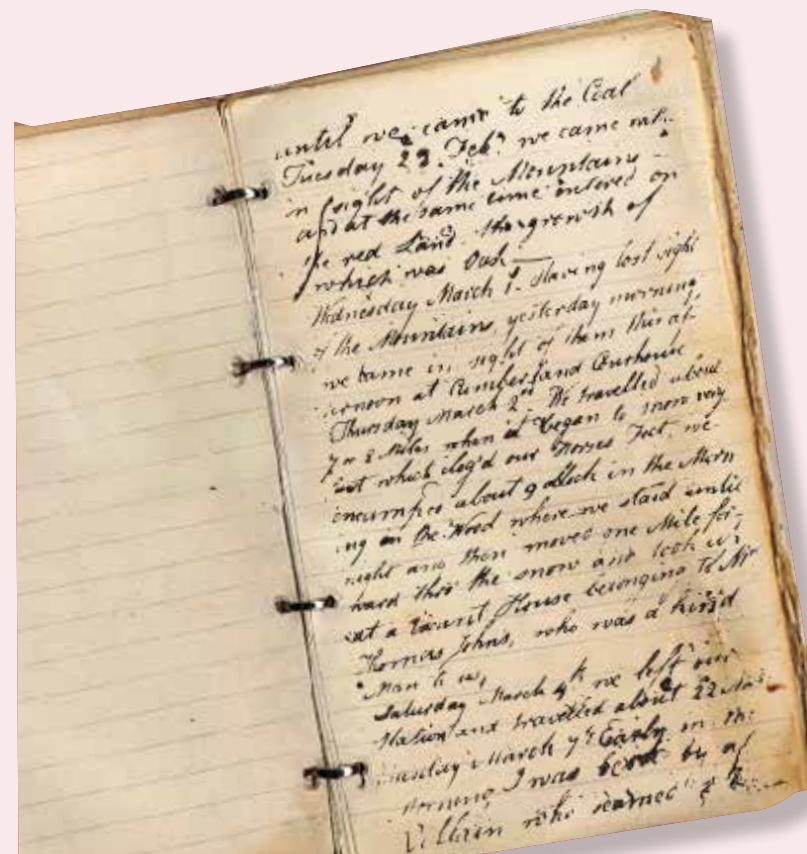 until we came to the Coal
Tuesday 28. Feb? we came with
in sight of the Mountains
and at the same time entered on
the red Land. the growth of
which was Oak
Wednesday March 1. Having lost sight
of the Mountains, yesterday morning,
we came in sight of them this af
ternoon at Cumberland Courhouse
Thursday March 2nd We travelled about
7 or 8 Miles when it began to snow very
fast which clog'd our Horses Feet, we
encamped about 9 oClock in the Morn
ing in the Wood where we staid until
night and then moved one Mile for-
ward thro the snow and took up
at a Vacant House belonging to Mr
Thomas Johns, who was a kind
Man to us,
Saturday March 4th we left our
Station and travelled about 22
March 7th Early in the
morning I was by a
Villain who seamed